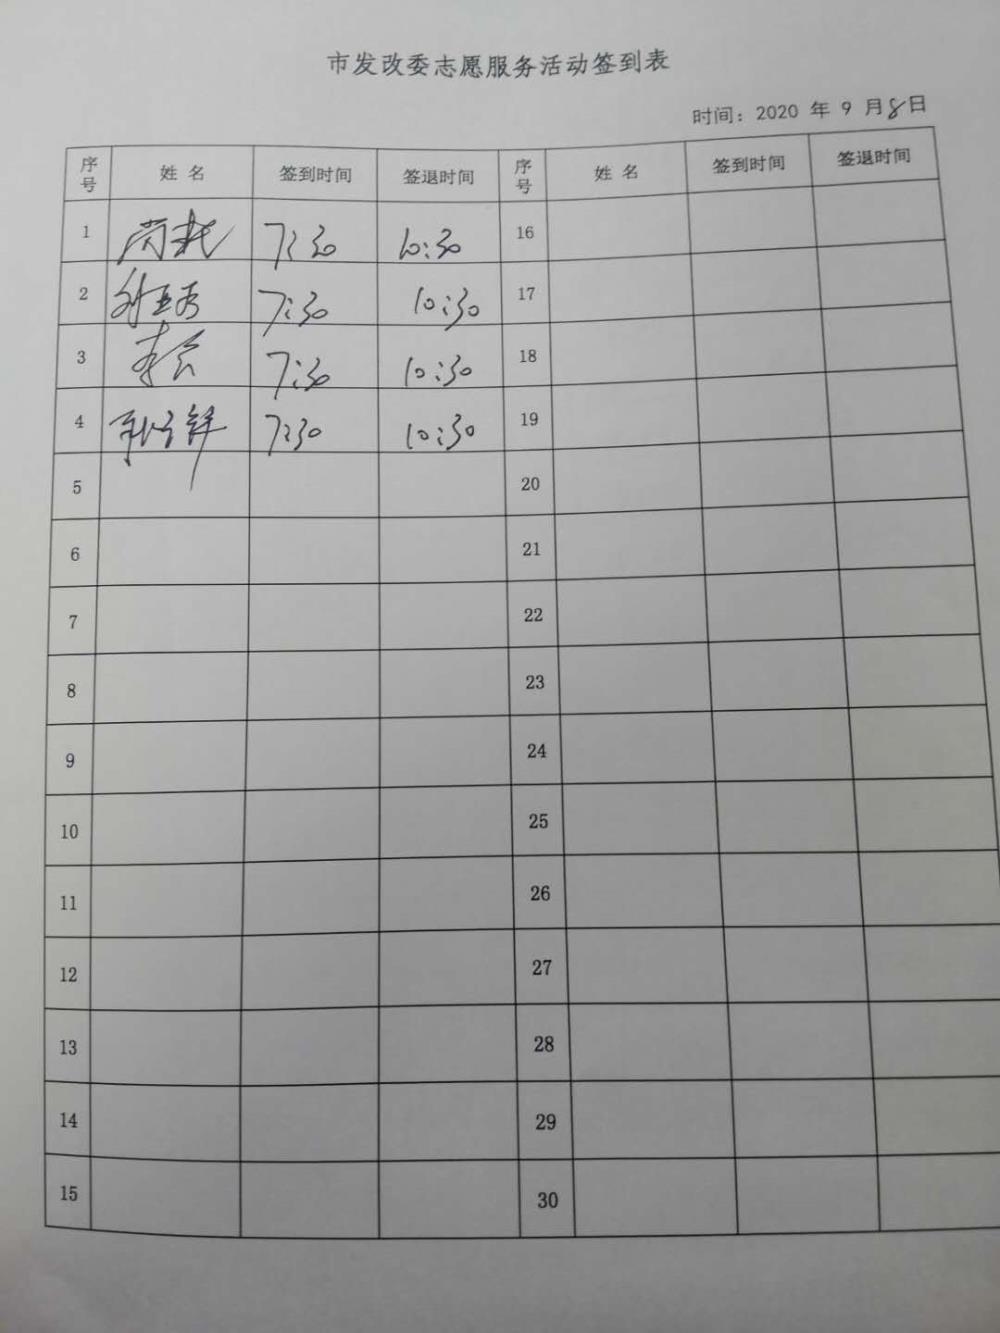 市发改委志愿服务活动签到表
时间：2020 年 9 月 8 日
序号 姓名 签到时间 签退时间 序号 姓名 签到时间 签退时间
1 7:30 10:30 16
2 7:30 10:30 17
3 7:30 10:30 18
4 7:30 10:30 19
5 20
6 21
7 22
8 23
9 24
10 25
11 26
12 27
13 28
14 29
15 30